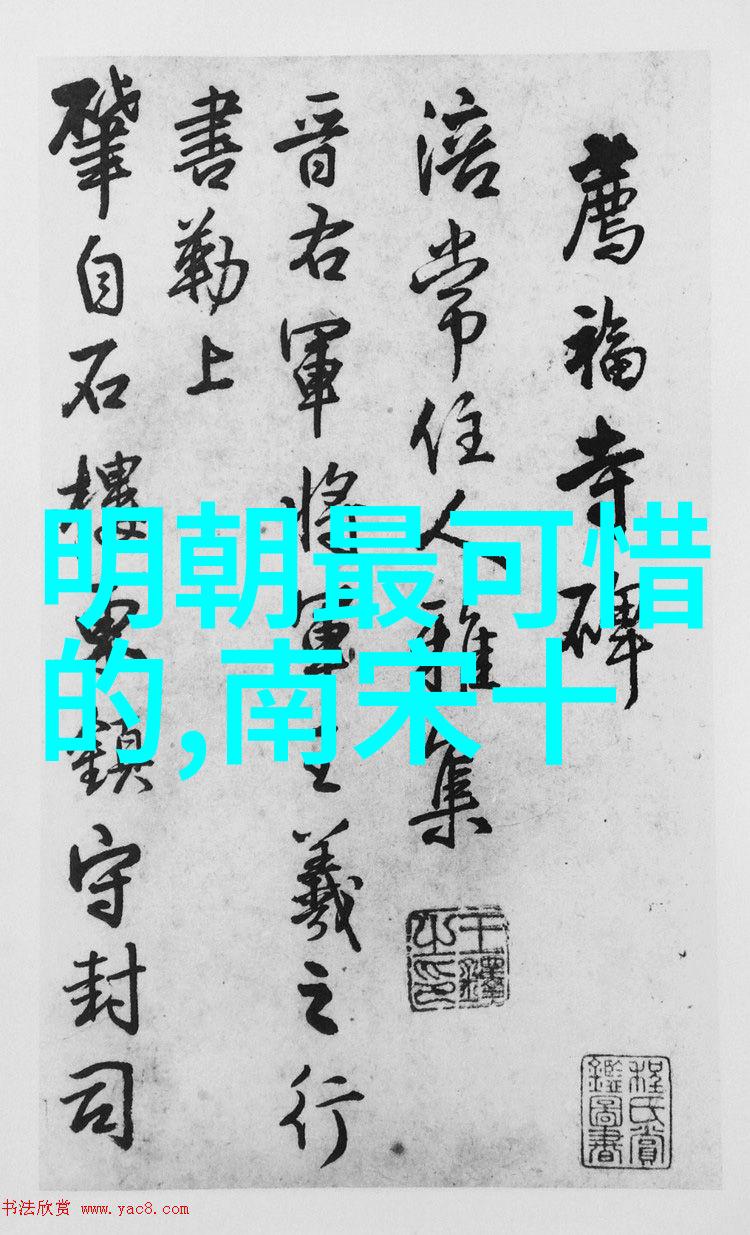 薦福寺碑
涪常住人雅集
晋右軍將軍王羲之行
書勒上
肇自石樓鎮守封司
明朝最可惜
的,南宋十
王鐸之印
程氏賞鑑圖書
书法欣赏 www.yac8.com